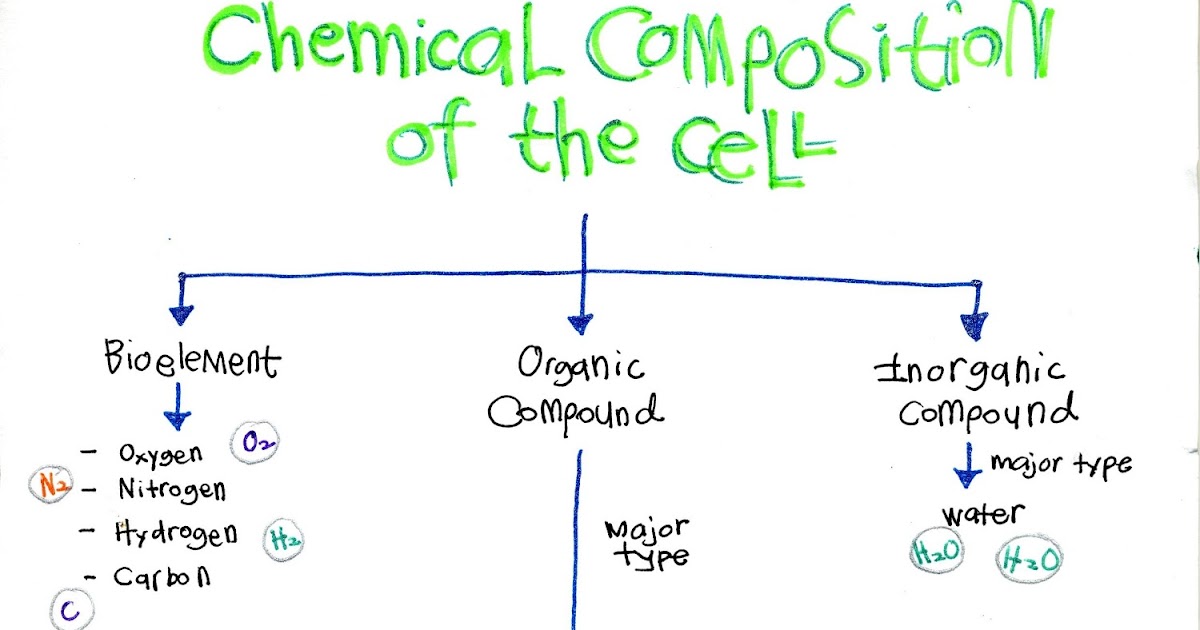 Chemical Composition
of the cell
Bioelement
- Oxygen O₂
N₂ - Nitrogen
- Hydrogen H₂
- Carbon
C
Organic
Compound
Major
type
Inorganic
compound
major type
water
H₂O H₂O